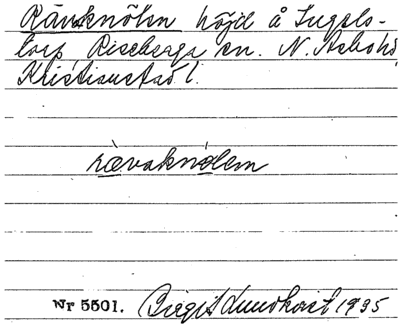 Rävknölen höjd å Ingels-
torp Riseberga sn. N. Åsbo hd
Kristianstad l.
rævaknølem
Nr 5501. Birgit Lundkvist 1935